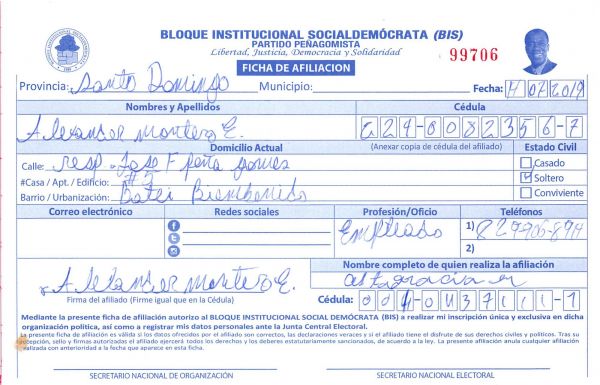 BLOQUE INSTITUCIONAL SOCIALDEMÓCRATA (BIS)
PARTIDO PEÑAGOMISTA
Libertad, Justicia, Democracia y Solidaridad
99706
FICHA DE AFILIACION
Provincia: Santo Domingo Municipio: Fecha: 07 2019
Nombres y Apellidos Cédula
Alexander montero E. 
(Anexar copia de cédula del afiliado)
Domicilio Actual Estado Civil
Calle: resp. Jose F peña gomez Casado
#Casa / Apt. / Edificio: #5 Soltero
Barrio / Urbanización: Batei Bienbenido Conviviente
Correo electrónico Redes sociales Profesión/Oficio Teléfonos
Empleado 1)
2)
Nombre completo de quien realiza la afiliación
x Alexander montero E. altagracia
Firma del afiliado (Firme igual que en la Cédula) Cédula:
Mediante la presente ficha de afiliación autorizo al BLOQUE INSTITUCIONAL SOCIAL DEMÓCRATA (BIS) a realizar mi inscripción única y exclusiva en dicha
organización política, así como a registrar mis datos personales ante la Junta Central Electoral.
La presente ficha de afiliación es válida si los datos ofrecidos por el afiliado son correctos, las declaraciones veraces y si el afiliado tiene el disfrute de sus derechos civiles y políticos. Tras su
recepción, sello y firmas autorizadas el afiliado ejercerá todos los derechos y los deberes estatutariamente sancionados, de acuerdo a la ley. La presente afiliación anula cualquier afiliación
realizada con anterioridad a la fecha que aparece en esta ficha.
SECRETARIO NACIONAL DE ORGANIZACIÓN SECRETARIO NACIONAL ELECTORAL